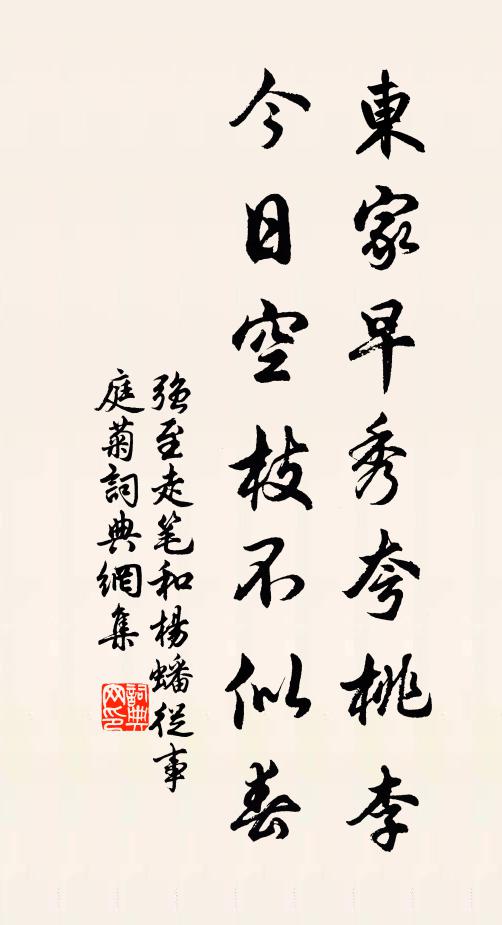 東家早秀夸桃李
今日空枝不似春
强至走笔和楊蟠從事
庭菊詞典網集
詞典网印